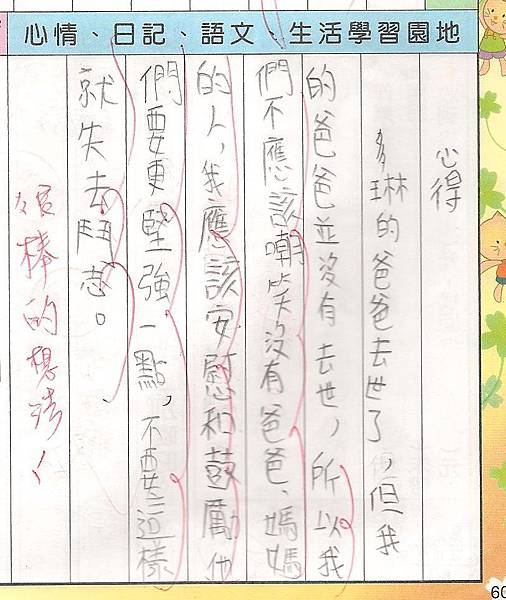 心情、日記、語文、生活學習園地
心得
多琳的爸爸去世了,但我
的爸爸並沒有去世,所以我
們不應該嘲笑沒有爸爸、媽媽
的人,我應該安慰和鼓勵他
們要更堅強一點,不要這樣
就失去鬥志。
很棒的想法!
60